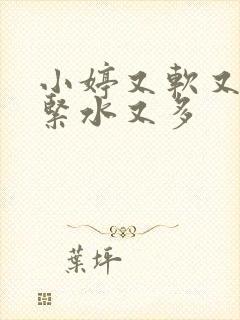 小婷又軟又
緊水又多
葉坪